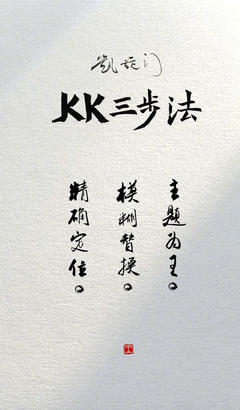 凯旋门
KK三步法
主题为王。
模糊替换。
精确定位。